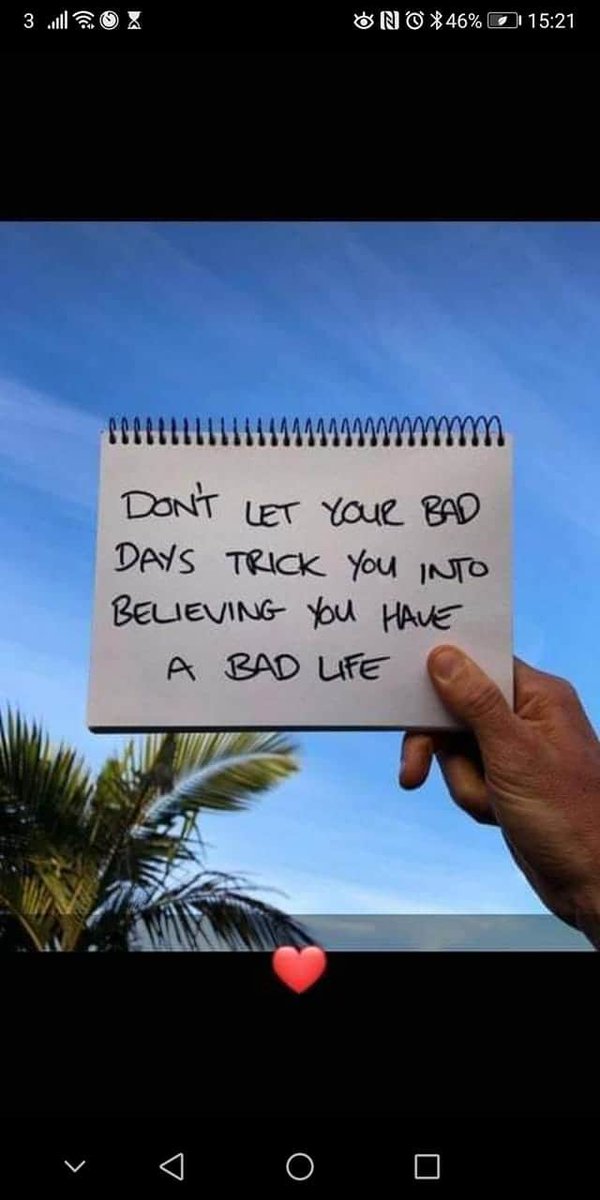 3 46% 15:21
DON'T LET YOUR BAD
DAYS TRICK YOU INTO
BELIEVING YOU HAVE
A BAD LIFE